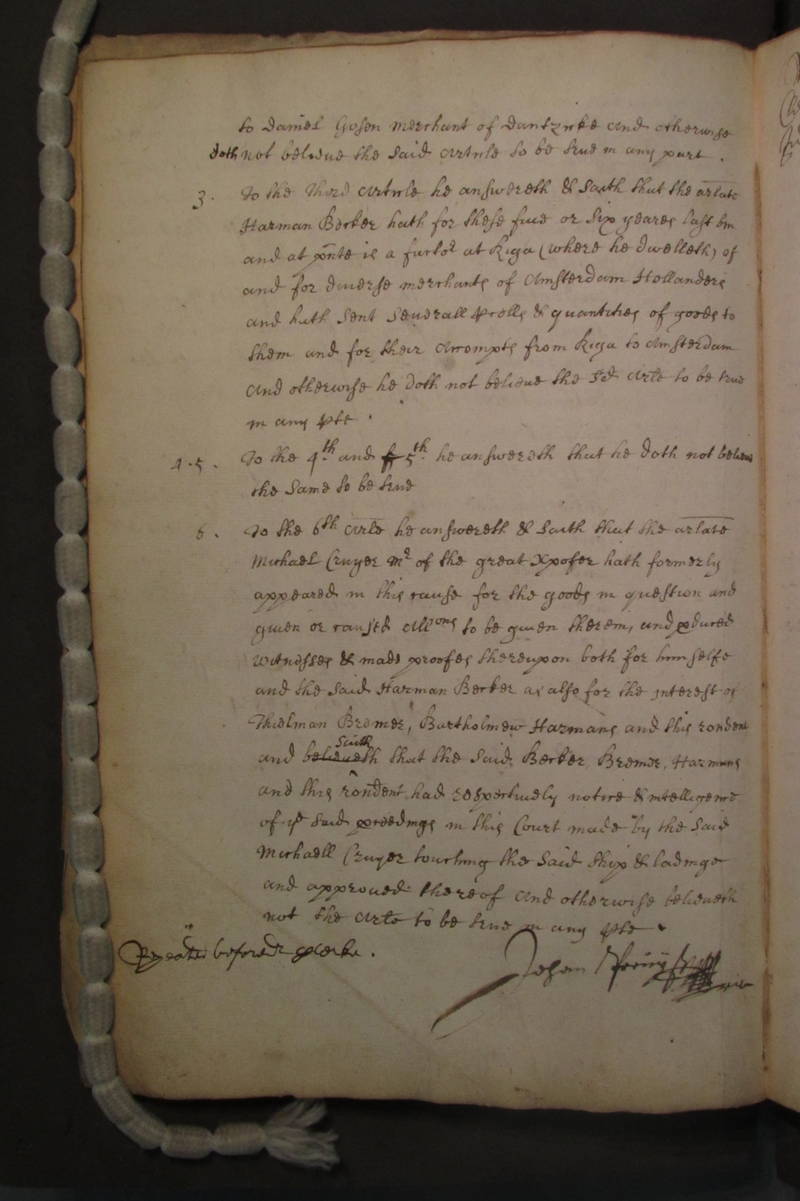 to Daniel Gosen merchant of Dantzicke and otherwise
doth not believe the said article to be true in any part.
3. To the third article he answereth & saith that the arlate
Harman Becker hath for these five or six yeares last bin
and at pnte is a factor at Riga (where he dwelleth) of
and for diverse merchants of Amsterdam Hollanders
and hath sent severall pcells & quantities of goods to
them and for their accompts from Riga to Amsterdam
and otherwise he doth not believe the sd arle to be true
in any pte.
4.5. To the 4th and 5th he answereth that he doth not believe
the same to be true
6. To the 6th arle he answereth & saith that the arlate
Michael Cruyer mr of the great Xpofer hath formerly
appeared in this cause for the goods in question and
given or caused allons to be given therein, and pduced
witnesses & made proofes thereupon both for himselfe
and the said Harman Becker as also for the interest of
Thielman Bremer, Bartholmew Harmans and this rondent
and believeth saith that the said Becker Bremer, Harmans
and this rondent had respectively notice & intelligence
of ye said pceedings in this Court made by the said
Michaell Cruyer touching the said ship & ladinge
and approved thereof and otherwise believeth
not the arle to be true in any pte.
Repeated before dr Clerke.
Johan